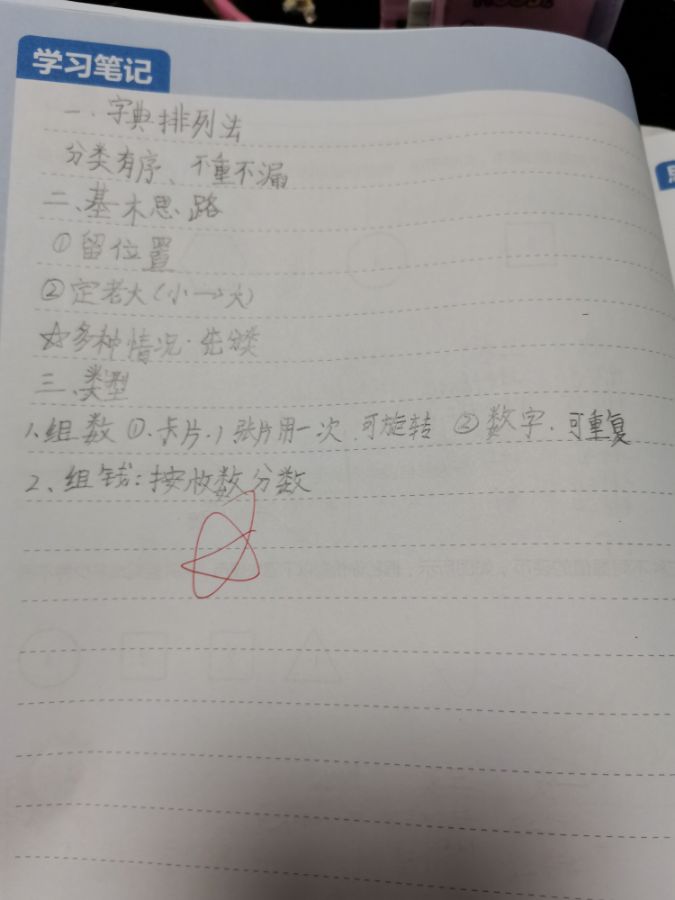 学习笔记
一.字典排列法
分类有序、不重不漏
二、基本思路
①留位置
②定老大(小→大)
☆多种情况.先分类
三、类型
1、组数①.卡片.1张片用一次.可旋转 ②数字.可重复
2、组钱:按枚数分数